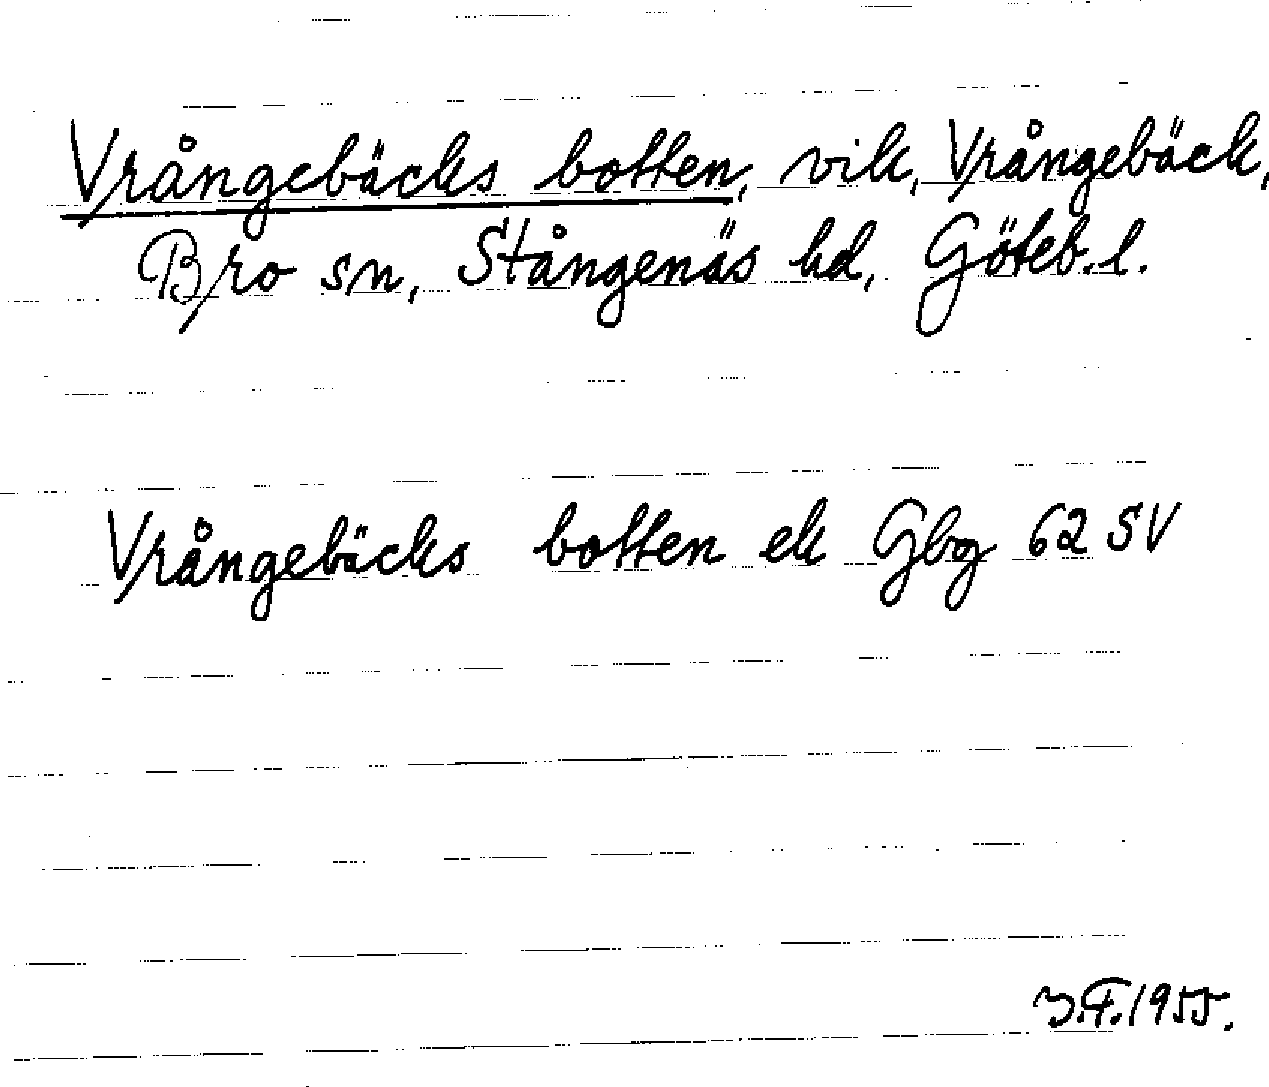 Vrångebäcks botten, vik, Vrångebäck,
Bro sn, Stångenäs hd, Göteb. l.
Vrångebäcks botten ek Gbg 62 SV
1955.